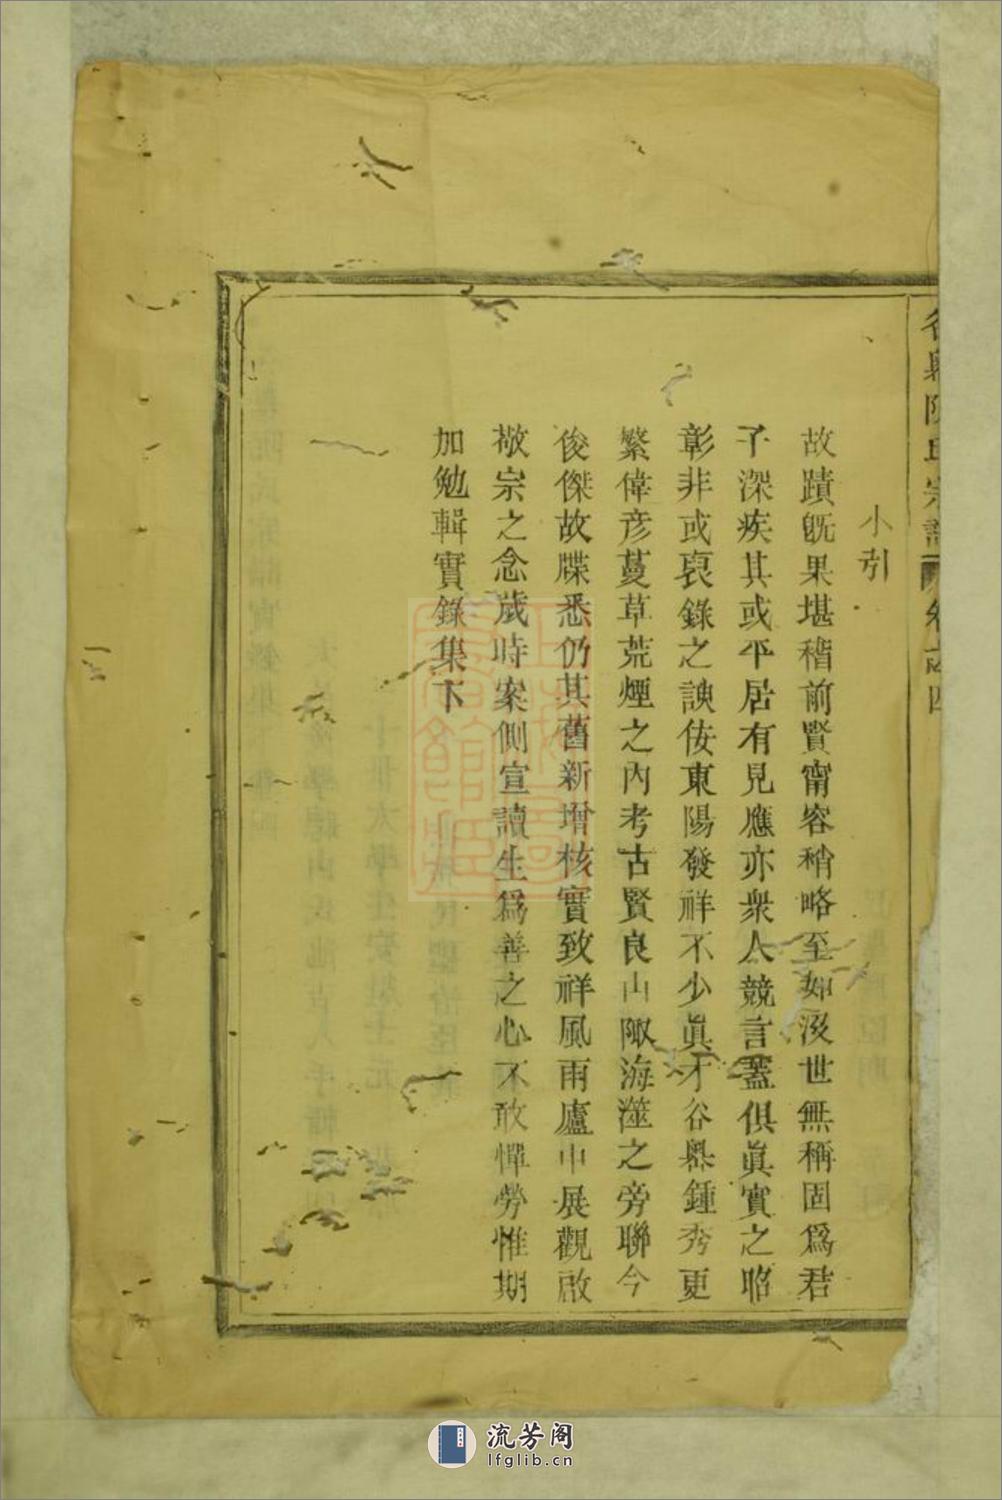 谷奧陳氏宗譜 卷之四
小引
故蹟旣果堪稽前賢甯容稍略至如沒世無稱固爲君
子深疾其或平居有見應亦衆人競言蓋俱眞實之昭
彰非或裒錄之諛佞東陽發祥不少眞才谷奧鍾秀更
繁偉彦蔓草荒煙之內考古賢良山陬海澨之旁聯今
俊傑故牒悉仍其舊新增核實致祥風雨廬中展觀啟
敬宗之念歲時案側宣讀生爲善之心不敢憚勞惟期
加勉輯實錄集下
流芳阁
lfglib.cn